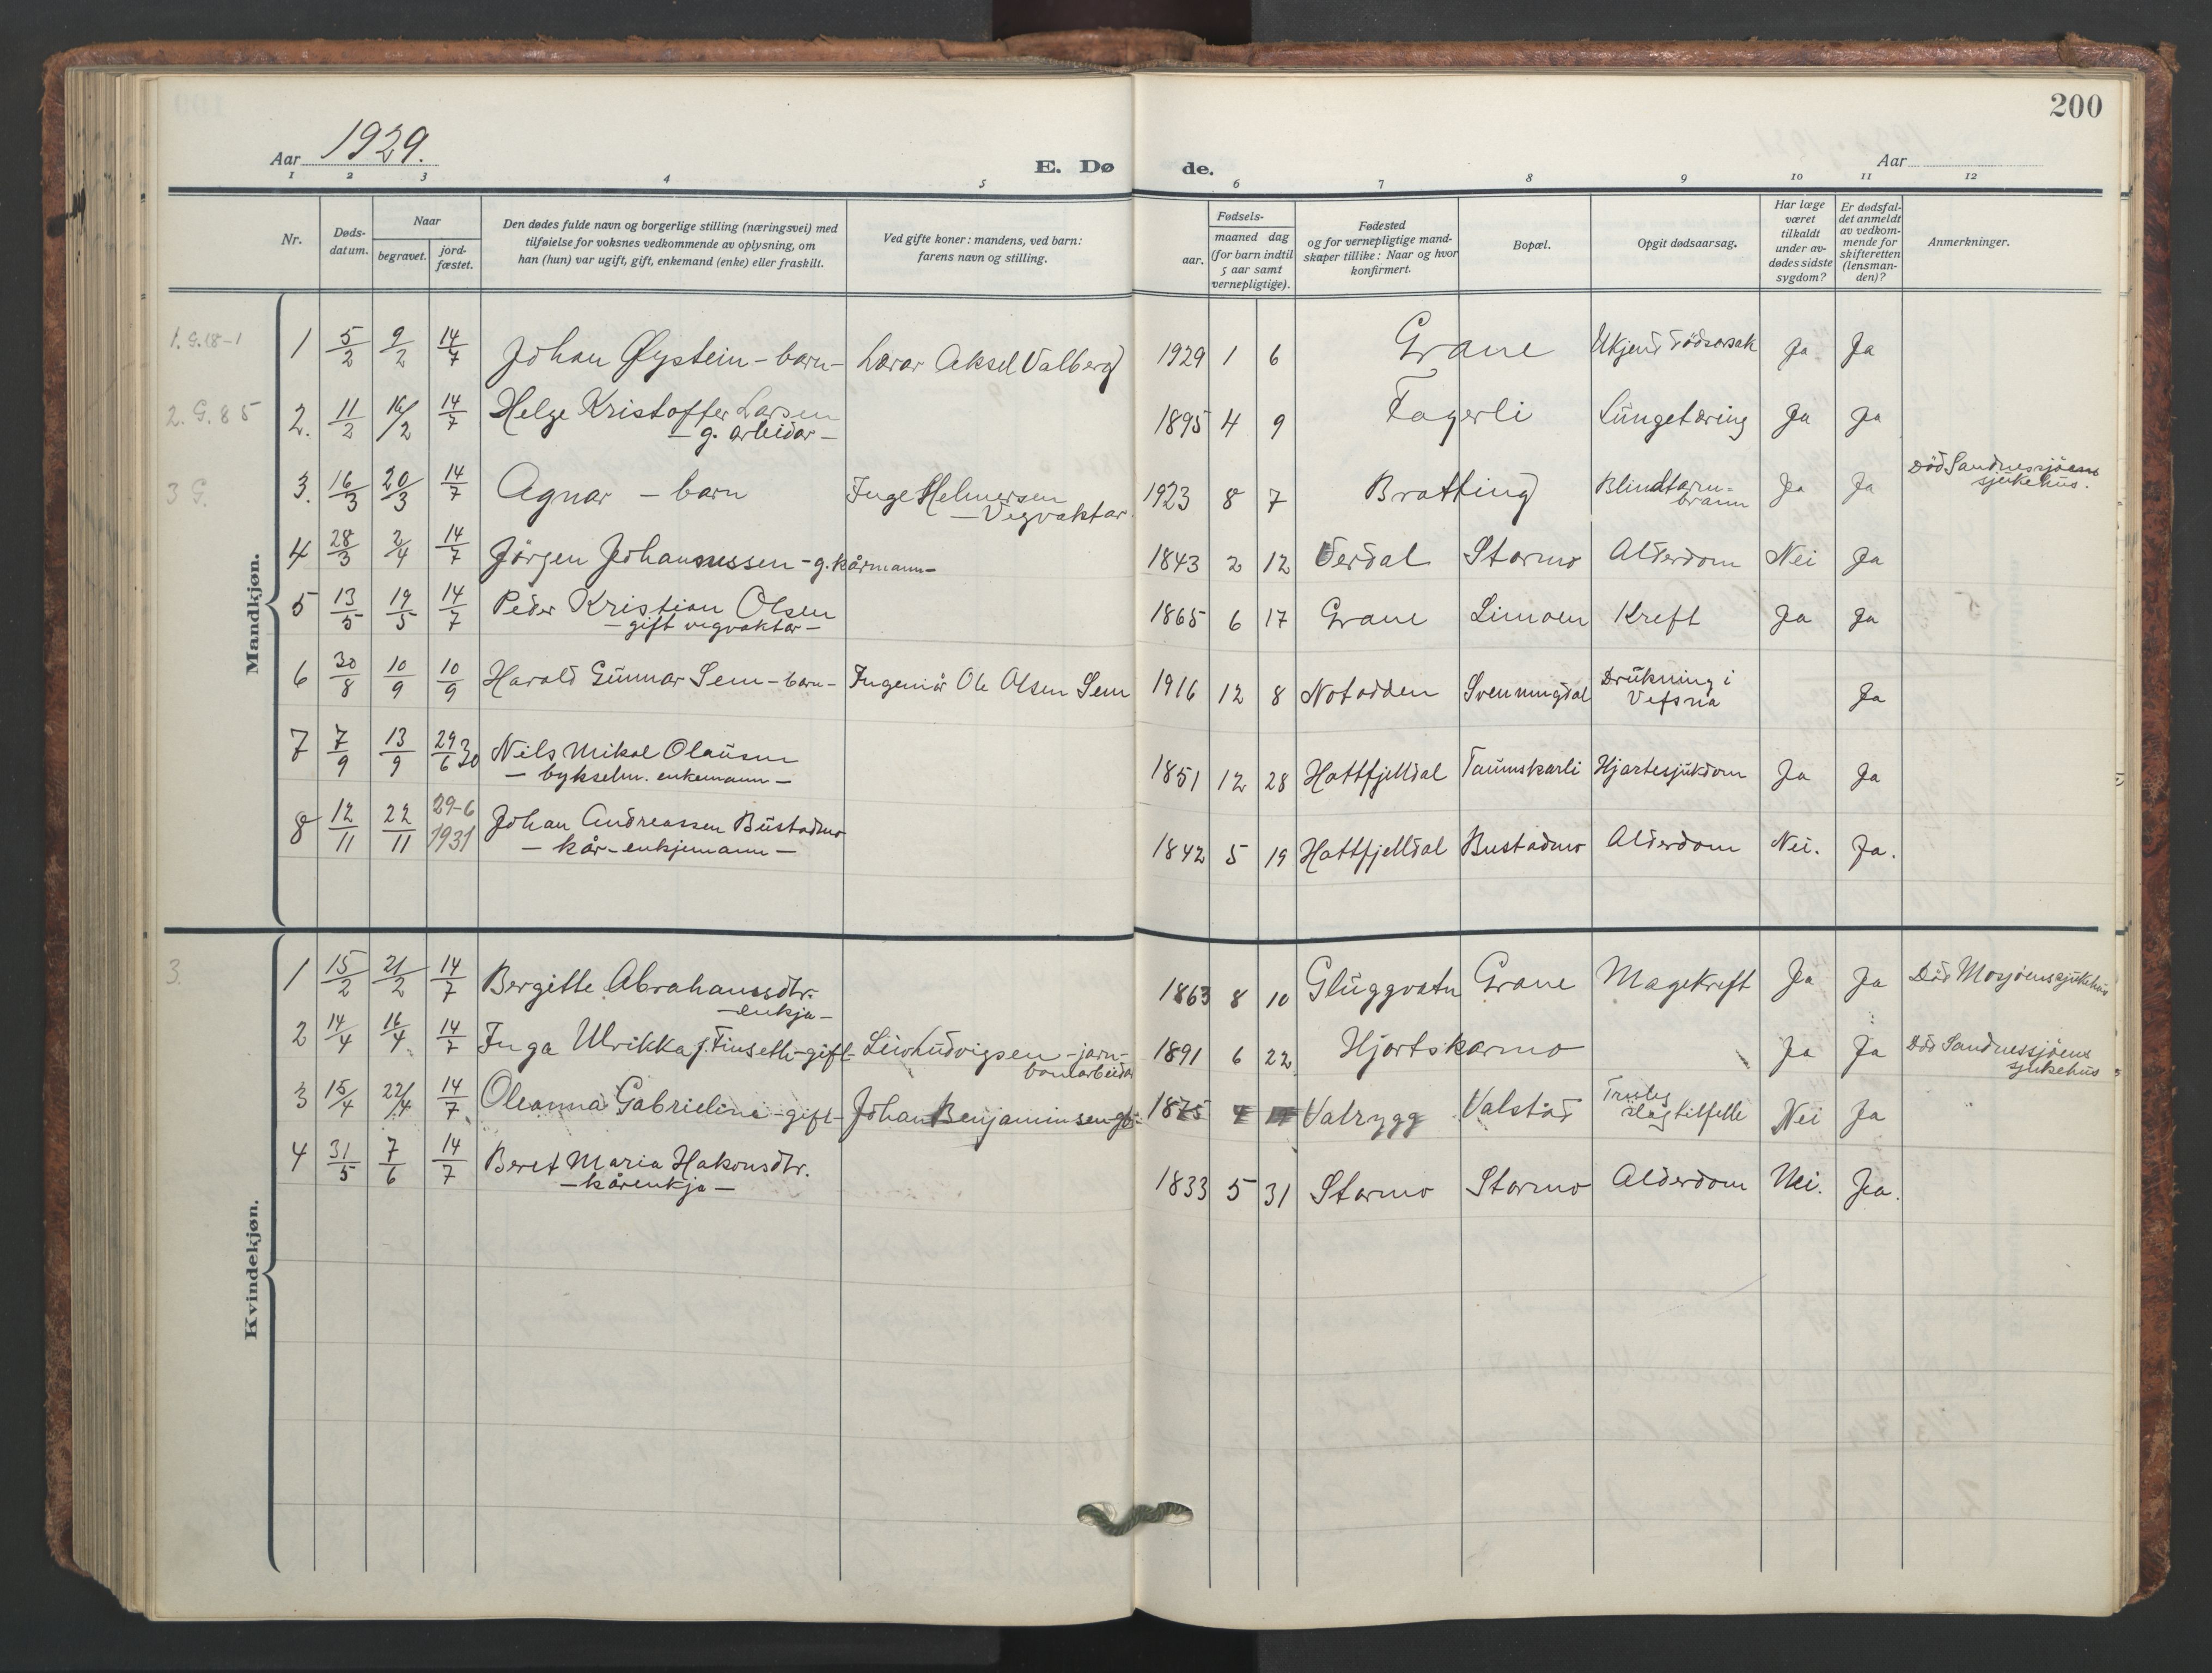 200
Aar 1929.
E. Dø
de.
Aar
1 2 3 4 5 6 7 8 9 10 11 12
Nr.
Døds-
datum.
Naar
begravet.
jord-
fæstet.
Den dødes fulde navn og borgerlige stilling (næringsvei) med
tilføielse for voksnes vedkommende av oplysning, om
han (hun) var ugift, gift, enkemand (enke) eller fraskilt.
Ved gifte koner: mandens, ved barn:
farens navn og stilling.
Fødsels-
aar.
maaned dag
(for barn indtil
5 aar samt
vernepligtige).
Fødested
og for vernepligtige mand-
skaper tillike: Naar og hvor
konfirmert.
Bopæl.
Opgit dødsaarsag.
Har læge
været
tilkaldt
under av-
dødes sidste
sygdom?
Er dødsfal-
det anmeldt
av vedkom-
mende for
skifteretten
(lensman-
den)?
Anmerkninger.
Mandkjøn.
1 5/2 9/2 14/7 Johan Øystein - barn - Lærar Aksel Valberg 1929 1 6 Grane Ukjend dödsorsak Ja Ja
2. G. 85
2. 11/2 16/2 14/7 Helge Kristoffer Larsen
- g. arbeidar - 1895 4 9 Fagerli Lungetæring Ja Ja
3 G.
3. 16/3 20/3 14/7 Agnar - barn Inge Helmersen
- Vegvaktar. 1923 8 7 Bratting Blindtarm-
brann Ja Ja Död Sandnessjöens
sjukehus.
4 28/3 2/4 14/7 Jörgen Johannessen - g. kårmann - 1843 2 12 Verdal Stormo Alderdom Nei Ja
5 13/5 19/5 14/7 Peder Kristian Olsen
- gift vegvaktar - 1865 6 17 Grane Limoen Kreft Ja Ja
6 30/8 10/9 10/9 Harald Gunnar Sem - barn - Ingeniör Ole Olsen Sem 1916 12 8 Notodden Svenningdal Drukning i
Vefsna Ja
7 7/9 13/9 29/6 30 Nils Mikal Olausen
- bykselm. enkemann - 1851 12 28 Hattfjelldal Taumskarli Hjartesjukdom Ja Ja
8 12/11 22/11 29-6
1931 Johan Andreassen Bustadmo
- kår - enkjemann - 1842 5 19 Hattfjelldal Bustadmo Alderdom Nei. Ja.
Kvindekjøn.
3.
1 15/2 21/2 14/7 Bergitte Abrahamsdtr.
- enkja - 1863 8 10 Gluggvatn Grane Magekreft Ja Ja Död Mosjöens sjukehus
2 14/4 16/4 14/7 Inga Ulrikka f. Finseth - gift - Ludvigsen - jarn-
banearbeidar 1891 6 22 Hjortskarmo Ja Ja Död Sandnessjöens
sjukehus
3 15/4 22/4 14/7 Oleanna Gabrieline - gift - Johan Benjaminsen gb. 1875 Valrygg Valstad
slagtilfelle Nei Ja
4 31/5 7/6 14/7 Beret Maria Hakonsdtr.
- kårenkja - 1833 5 31 Stormo Stormo Alderdom Nei. Ja.